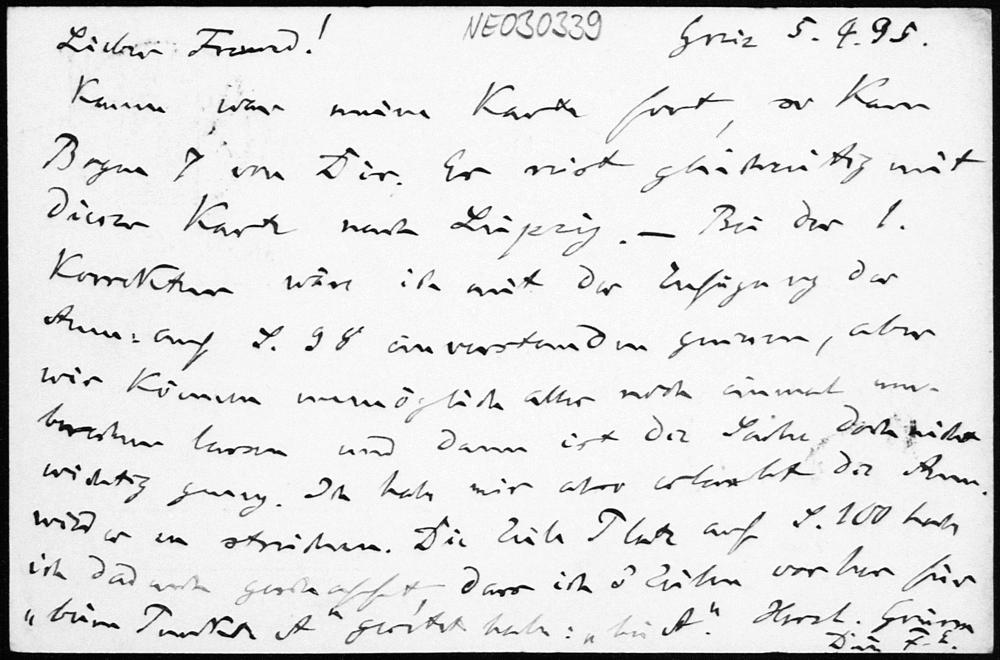 Lieber Freund! NE030339 Greiz 5.4.95.
Kaum war meine Karte fort, so kam
Bogen 7 von Dir. Er reist gleichzeitig mit
dieser Karte nach Leipzig. — Bei der 1.
Korrektur wäre ich mit der Einfügung der
Anm: auf S. 98 einverstanden gewesen, aber
wir können unmöglich alles noch einmal um-
brechen lassen und dann ist die Sache doch nicht
wichtig genug. Ich habe mir also erlaubt die Anm.
wieder zu streichen. Die Zeile Platz auf S. 100 habe
ich dadurch geschafft, dass ich 8 Zeilen vorher für
„beim Punkte A“ gesetzt habe: „bei A“. Herzl. Grüsse
Dein F. E.